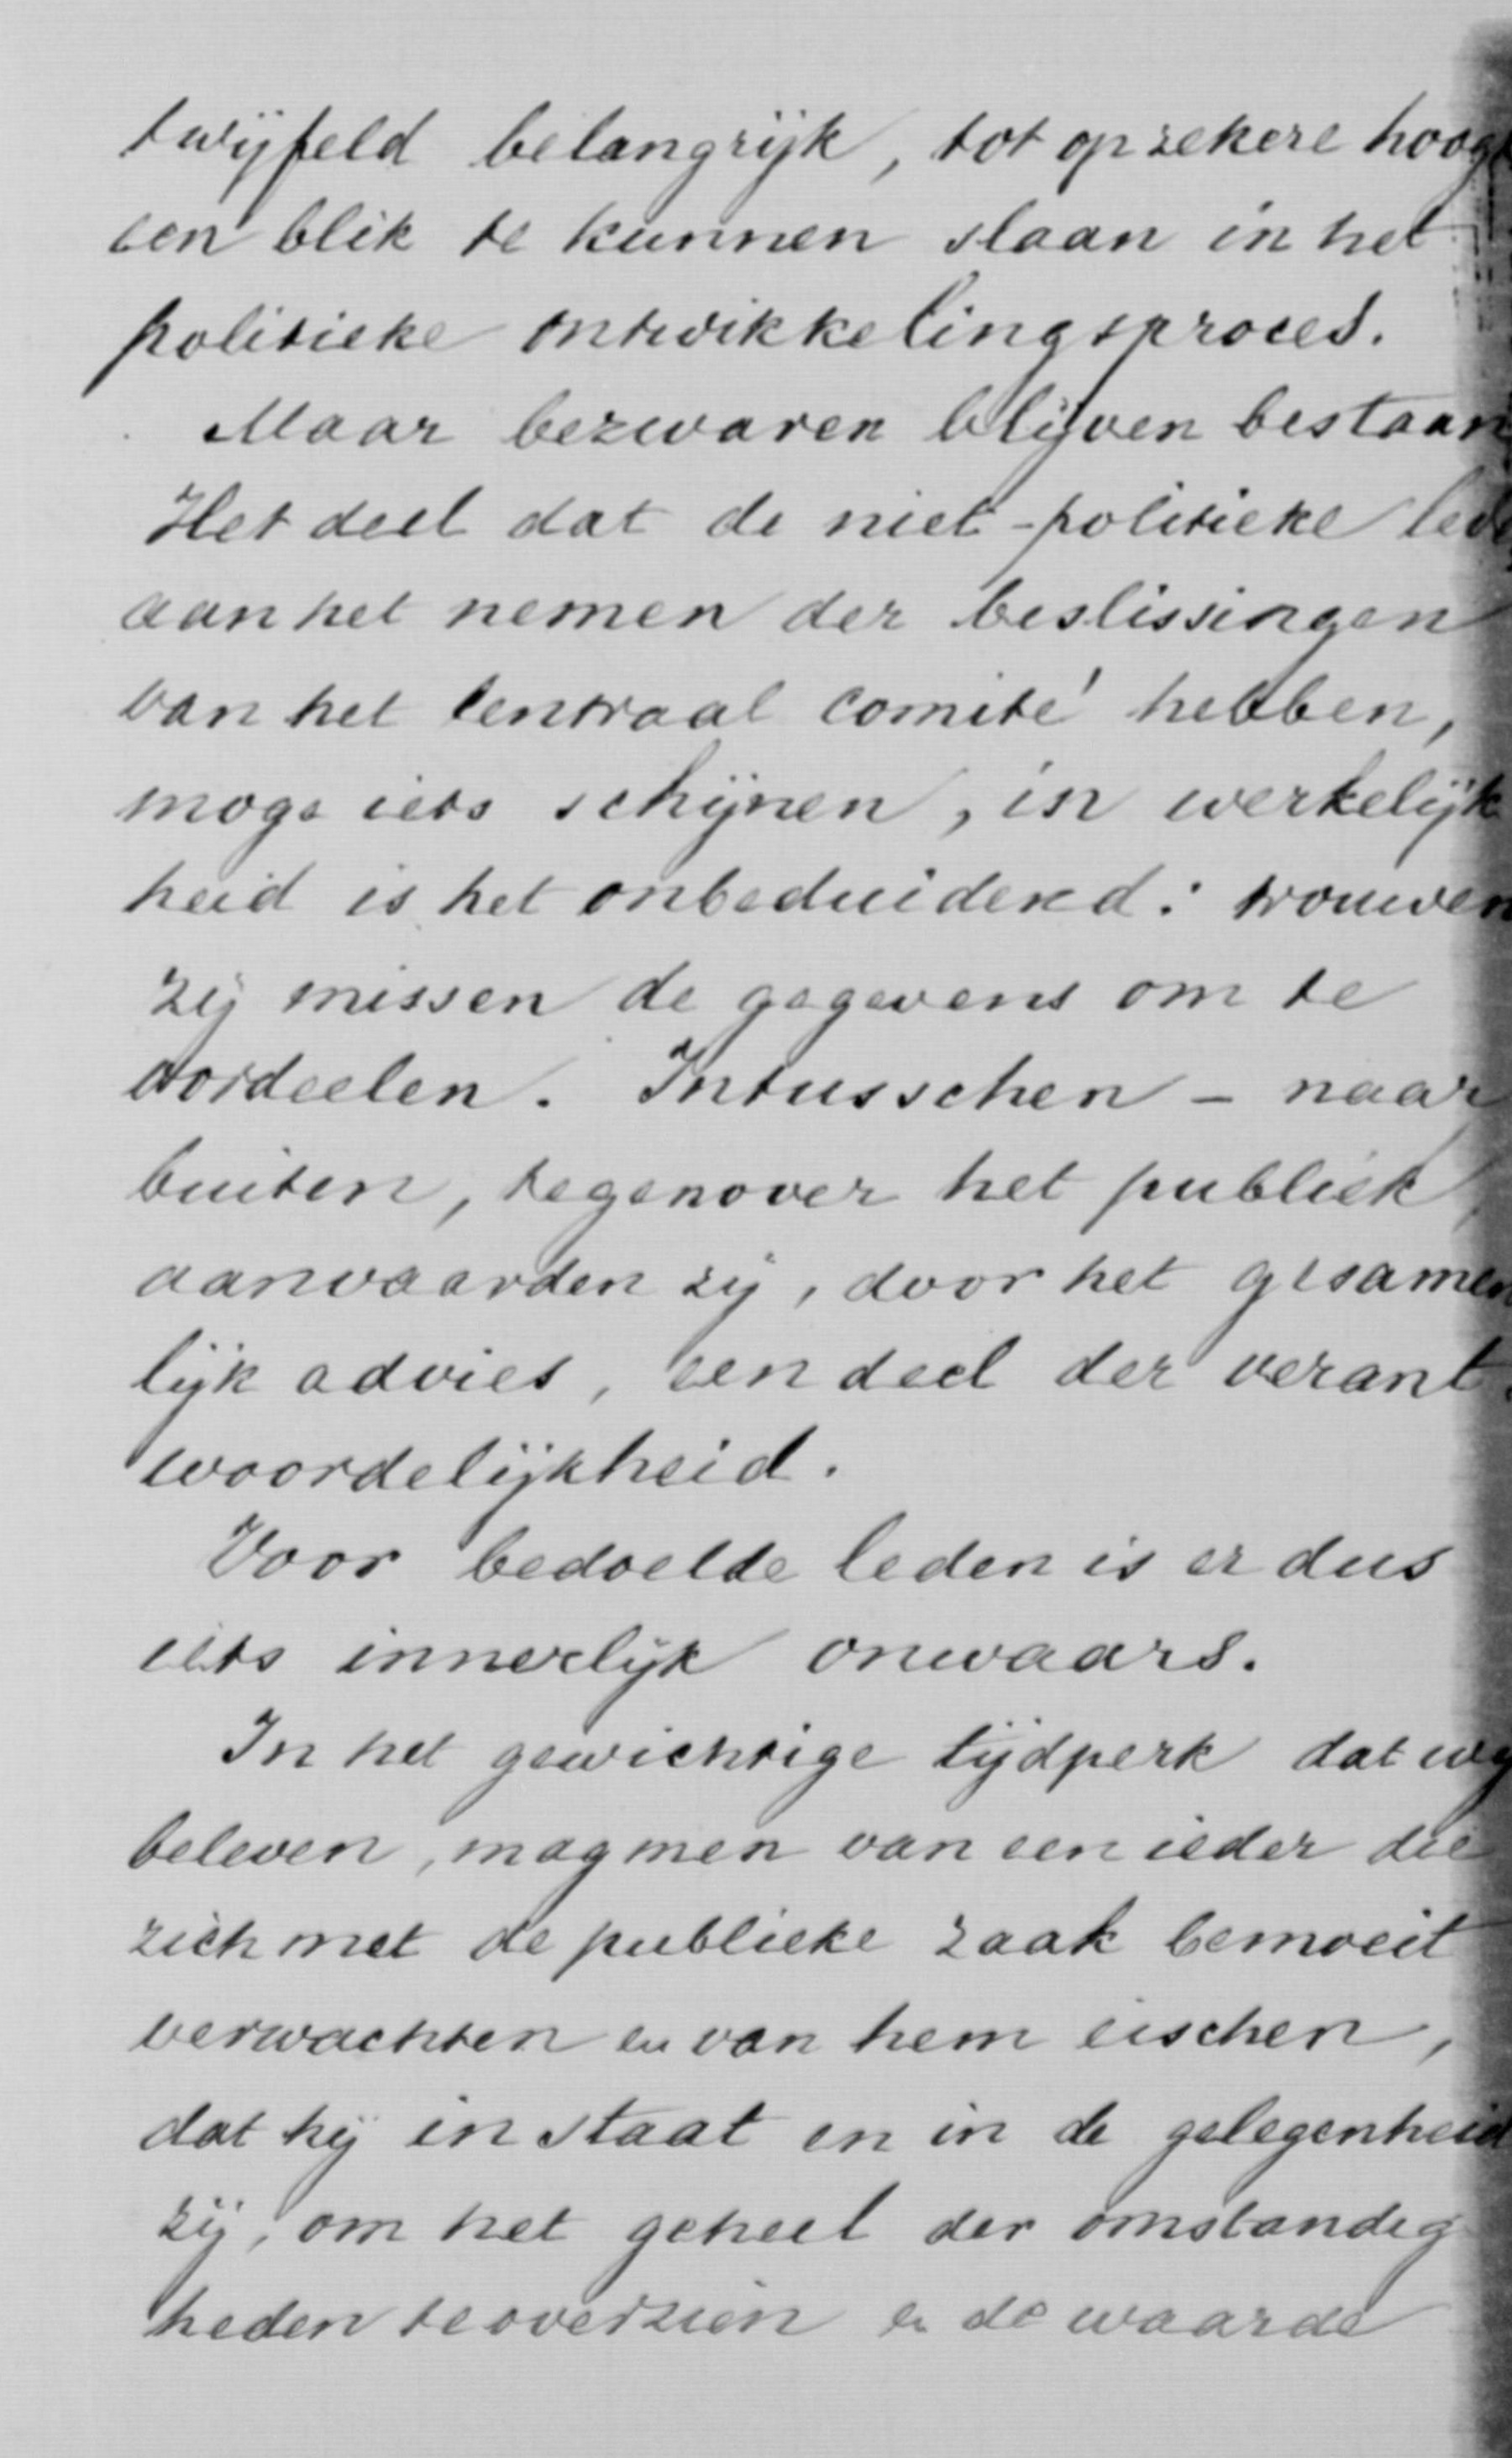 twijfeld belangrijk, tot op zekere hoog
een blik te kunnen slaan in het
politieke ontwikkelingsproces.
Maar bezwaren blijven bestaan
Het deel dat de niet-politieke led
aan het nemen der beslissingen
van het Centraal Comité hebben,
moge iets schijnen, in werkelijk
heid is het onbeduidend: trouwen
zij missen de gegevens om te
oordeelen. Intusschen - naar
buiten, tegenover het publiek,
aanvaarden zij, door het gesamen
lijk advies, een deel der verant
woordelijkheid.
Voor bedoelde leden is er dus
iets innerlijk onwaars.
In het gewichtige tijdperk dat wij
beleven, mag men van een ieder die
zich met de publieke zaak bemoeit
verwachten en van hem eischen,
dat hij in staat en in de gelegenheid
zij, om het geheel der omstandig
heden te overzien en de waarde